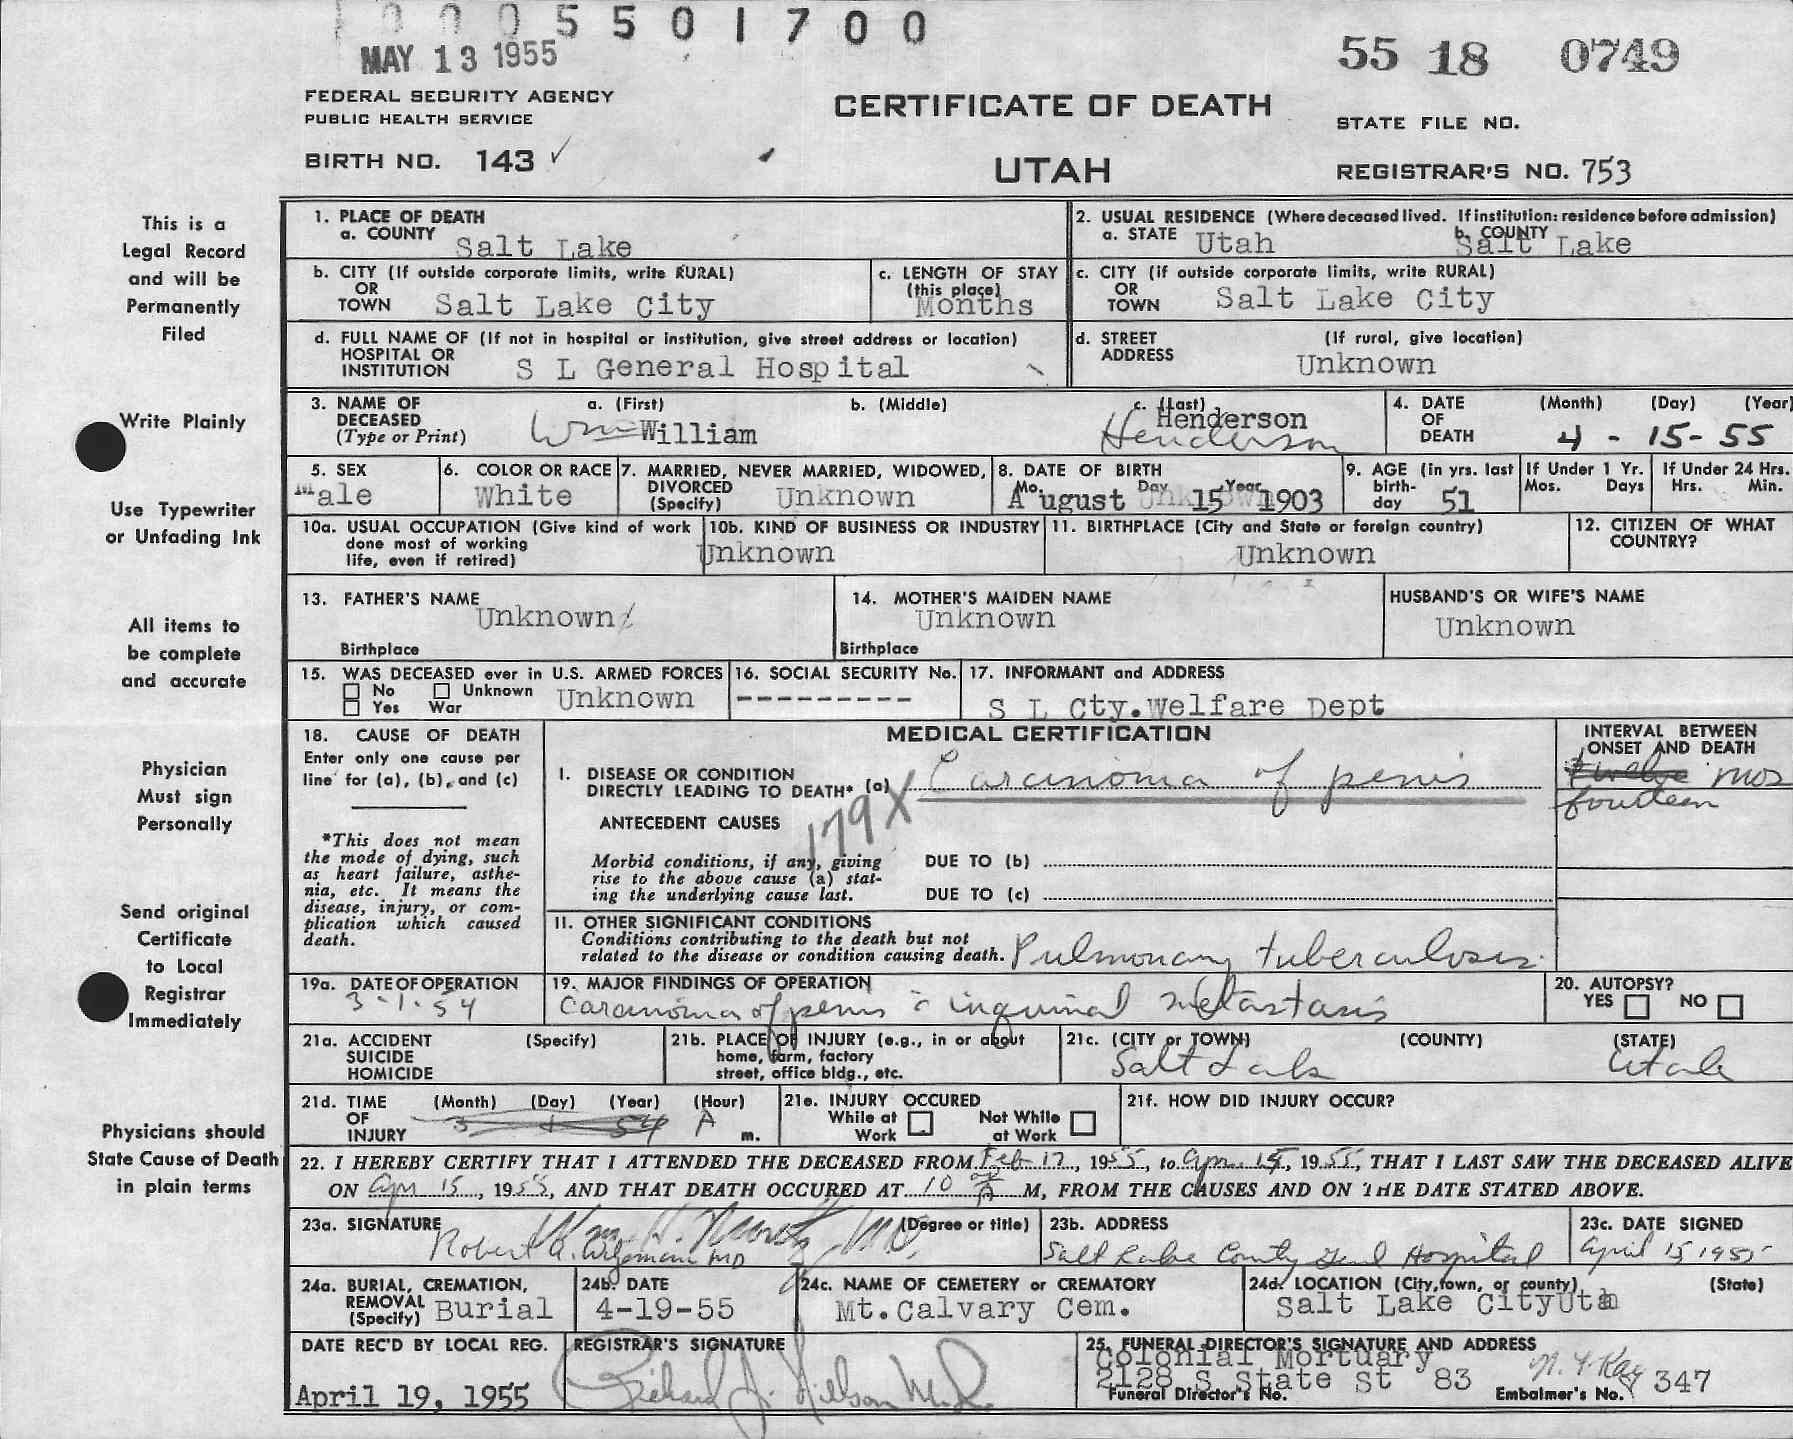 0 0 0 5 5 0 1 7 0 0
MAY 13 1955
55 18 0749
FEDERAL SECURITY AGENCY
PUBLIC HEALTH SERVICE
CERTIFICATE OF DEATH
STATE FILE NO.
BIRTH NO. 143 ✓
UTAH
REGISTRAR'S NO. 753
This is a
Legal Record
and will be
Permanently
Filed
Write Plainly
Use Typewriter
or Unfading Ink
All items to
be complete
and accurate
Physician
Must sign
Personally
Send original
Certificate
to Local
Registrar
Immediately
Physicians should
State Cause of Death
in plain terms
1. PLACE OF DEATH
a. COUNTY Salt Lake
2. USUAL RESIDENCE (Where deceased lived. If institution: residence before admission)
a. STATE Utah b. COUNTY Salt Lake
b. CITY (If outside corporate limits, write RURAL)
OR
TOWN Salt Lake City
c. LENGTH OF STAY
(this place)
Months
c. CITY (if outside corporate limits, write RURAL)
OR
TOWN Salt Lake City
d. FULL NAME OF (If not in hospital or institution, give street address or location)
HOSPITAL OR
INSTITUTION S L General Hospital
d. STREET (If rural, give location)
ADDRESS Unknown
3. NAME OF
DECEASED
(Type or Print)
a. (First) b. (Middle) c. (Last)
Wm William Henderson
Henderson
4. DATE
OF
DEATH
(Month) (Day) (Year)
4 - 15 - 55
5. SEX
Male
6. COLOR OR RACE
White
7. MARRIED, NEVER MARRIED, WIDOWED,
DIVORCED
(Specify) Unknown
8. DATE OF BIRTH
Mo. Day Year
August 15 1903
9. AGE (in yrs. last
birth-
day 51
If Under 1 Yr.
Mos. Days
If Under 24 Hrs.
Hrs. Min.
10a. USUAL OCCUPATION (Give kind of work
done most of working
life, even if retired)
10b. KIND OF BUSINESS OR INDUSTRY
Unknown
11. BIRTHPLACE (City and State or foreign country)
Unknown
12. CITIZEN OF WHAT
COUNTRY?
13. FATHER'S NAME
Unknown
Birthplace
14. MOTHER'S MAIDEN NAME
Unknown
Birthplace
HUSBAND'S OR WIFE'S NAME
Unknown
15. WAS DECEASED ever in U.S. ARMED FORCES
No Unknown
Yes War
Unknown
16. SOCIAL SECURITY No.
---------
17. INFORMANT and ADDRESS
S L Cty.Welfare Dept
18. CAUSE OF DEATH
Enter only one cause per
line for (a), (b), and (c)
*This does not mean
the mode of dying, such
as heart failure, asthe-
nia, etc. It means the
disease, injury, or com-
plication which caused
death.
MEDICAL CERTIFICATION
I. DISEASE OR CONDITION
DIRECTLY LEADING TO DEATH* (a) Carcinoma of penis
179X
ANTECEDENT CAUSES
Morbid conditions, if any, giving
rise to the above cause (a) stat-
ing the underlying cause last.
DUE TO (b)
DUE TO (c)
INTERVAL BETWEEN
ONSET AND DEATH
Twelve mos
fourteen
II. OTHER SIGNIFICANT CONDITIONS
Conditions contributing to the death but not
related to the disease or condition causing death. Pulmonary tuberculosis.
19a. DATE OF OPERATION
3-1-54
19. MAJOR FINDINGS OF OPERATION
Carcinoma of penis c inguinal metastasis
20. AUTOPSY?
YES NO
21a. ACCIDENT (Specify)
SUICIDE
HOMICIDE
21b. PLACE OF INJURY (e.g., in or about
home, farm, factory
street, office bldg., etc.
21c. (CITY or TOWN) (COUNTY) (STATE)
Salt Lake Utah
21d. TIME (Month) (Day) (Year) (Hour)
OF
INJURY 3 1 54 A m.
21e. INJURY OCCURED
While at Work
Not While at Work
21f. HOW DID INJURY OCCUR?
22. I HEREBY CERTIFY THAT I ATTENDED THE DECEASED FROM Feb 17, 1955, to Apr. 15, 1955, THAT I LAST SAW THE DECEASED ALIVE
ON Apr 15, 1955, AND THAT DEATH OCCURED AT 10 A M, FROM THE CAUSES AND ON THE DATE STATED ABOVE.
23a. SIGNATURE (Degree or title)
Robert MD
23b. ADDRESS
Salt Lake County Genl Hospital
23c. DATE SIGNED
April 15 1955
24a. BURIAL, CREMATION,
REMOVAL
(Specify) Burial
24b. DATE
4-19-55
24c. NAME OF CEMETERY or CREMATORY
Mt.Calvary Cem.
24d. LOCATION (City, town, or county) (State)
Salt Lake City Utah
DATE REC'D BY LOCAL REG.
April 19, 1955
REGISTRAR'S SIGNATURE
Richard J. Nillson M.D.
25. FUNERAL DIRECTOR'S SIGNATURE AND ADDRESS
Colonial Mortuary
2128 S State St 83 347
Funeral Director's No. Embalmer's No.